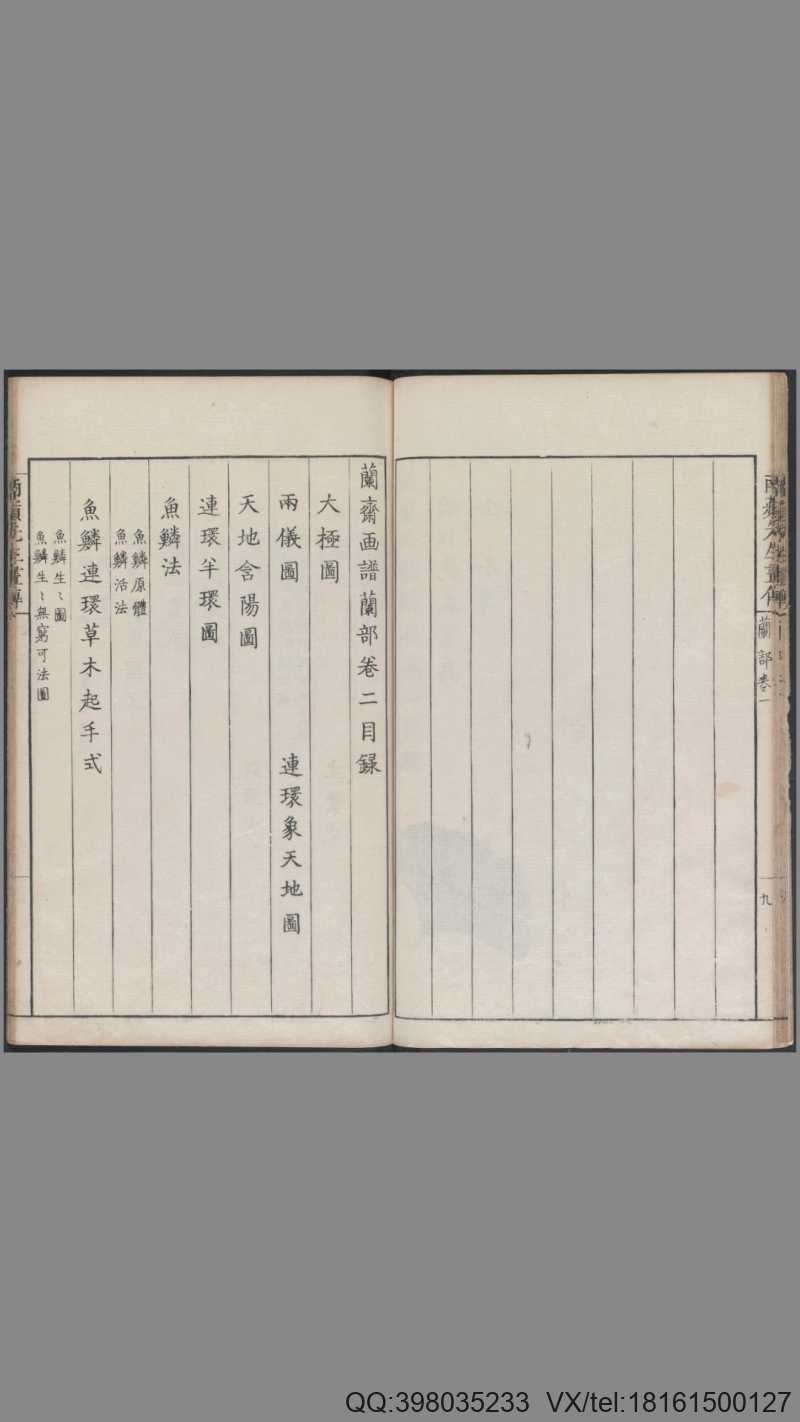 蘭部卷一
九
蘭齋画譜蘭部卷二目録
大極圖
兩儀圖 連環象天地圖
天地含陽圖
連環半環圖
魚鱗法
魚鱗原體
魚鱗活法
魚鱗連環草木起手式
魚鱗生〻圖
魚鱗生〻無窮可法圖
QQ:398035233 VX/tel:18161500127